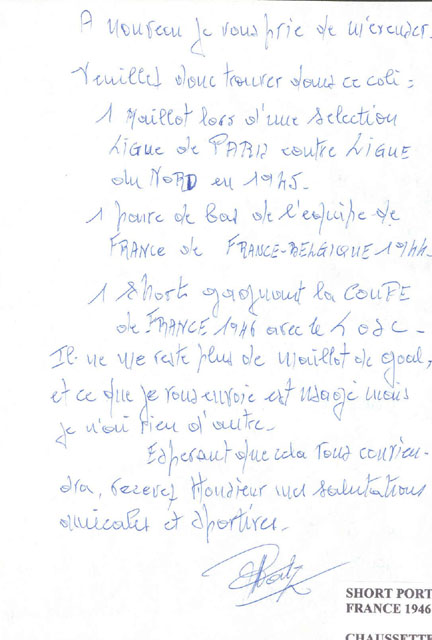 A nouveau je vous prie de m'excuser.
Veuillez donc trouver dans ce coli :
1 Maillot lors d'une selection
LIGUE de PARIS contre LIGUE
du NORD en 1945.
1 paire de bas de l'equipe de
FRANCE de FRANCE-BELGIQUE 1944.
1 Short gagnant la COUPE
de FRANCE 1946 avec le LOSC -
Il ne me reste plus de maillot de goal,
et ce que je vous envoie est usagé mais
je n'ai rien d'autre.
Esperant que cela vous convien-
dra, recevez Monsieur mes salutations
amicales et sportives.
SHORT PORT
FRANCE 1946
CHAUSSETTE